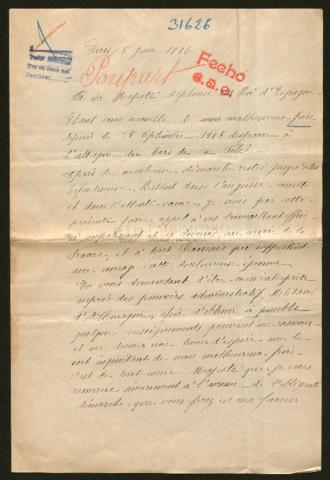 31626
Paris 5 juin 1916
Poupart
Fecho
a Sa Majesté Alphonse XIII Roi d'Espagne
Etant sans nouvelle de mon malheureux frère
depuis le 25 Septembre 1915 disparu à
l'attaque du bois de
après de nombreuses démarches restées jusqu'à
infructueuses. Restant dans l'angoisse cruelle
et dans l'attente vaine, je viens par cette
présente faire appel à vos
France, et à tout Français qui supportent
avec courage cette douloureuse épreuve
En vous demandant d'être mon interprète
auprès des pouvoirs administratif Militaire
d'Allemagne, afin d'obtenir si possible
quelques renseignements pouvant me rassurer
et me donner une lueur d'espoir
sort inquiétant de mon malheureux frère
C'est de tout coeur Majesté que je vous
remercie sincèrement à l'avance de l'obligeante
démarche que vous ferez en ma faveur